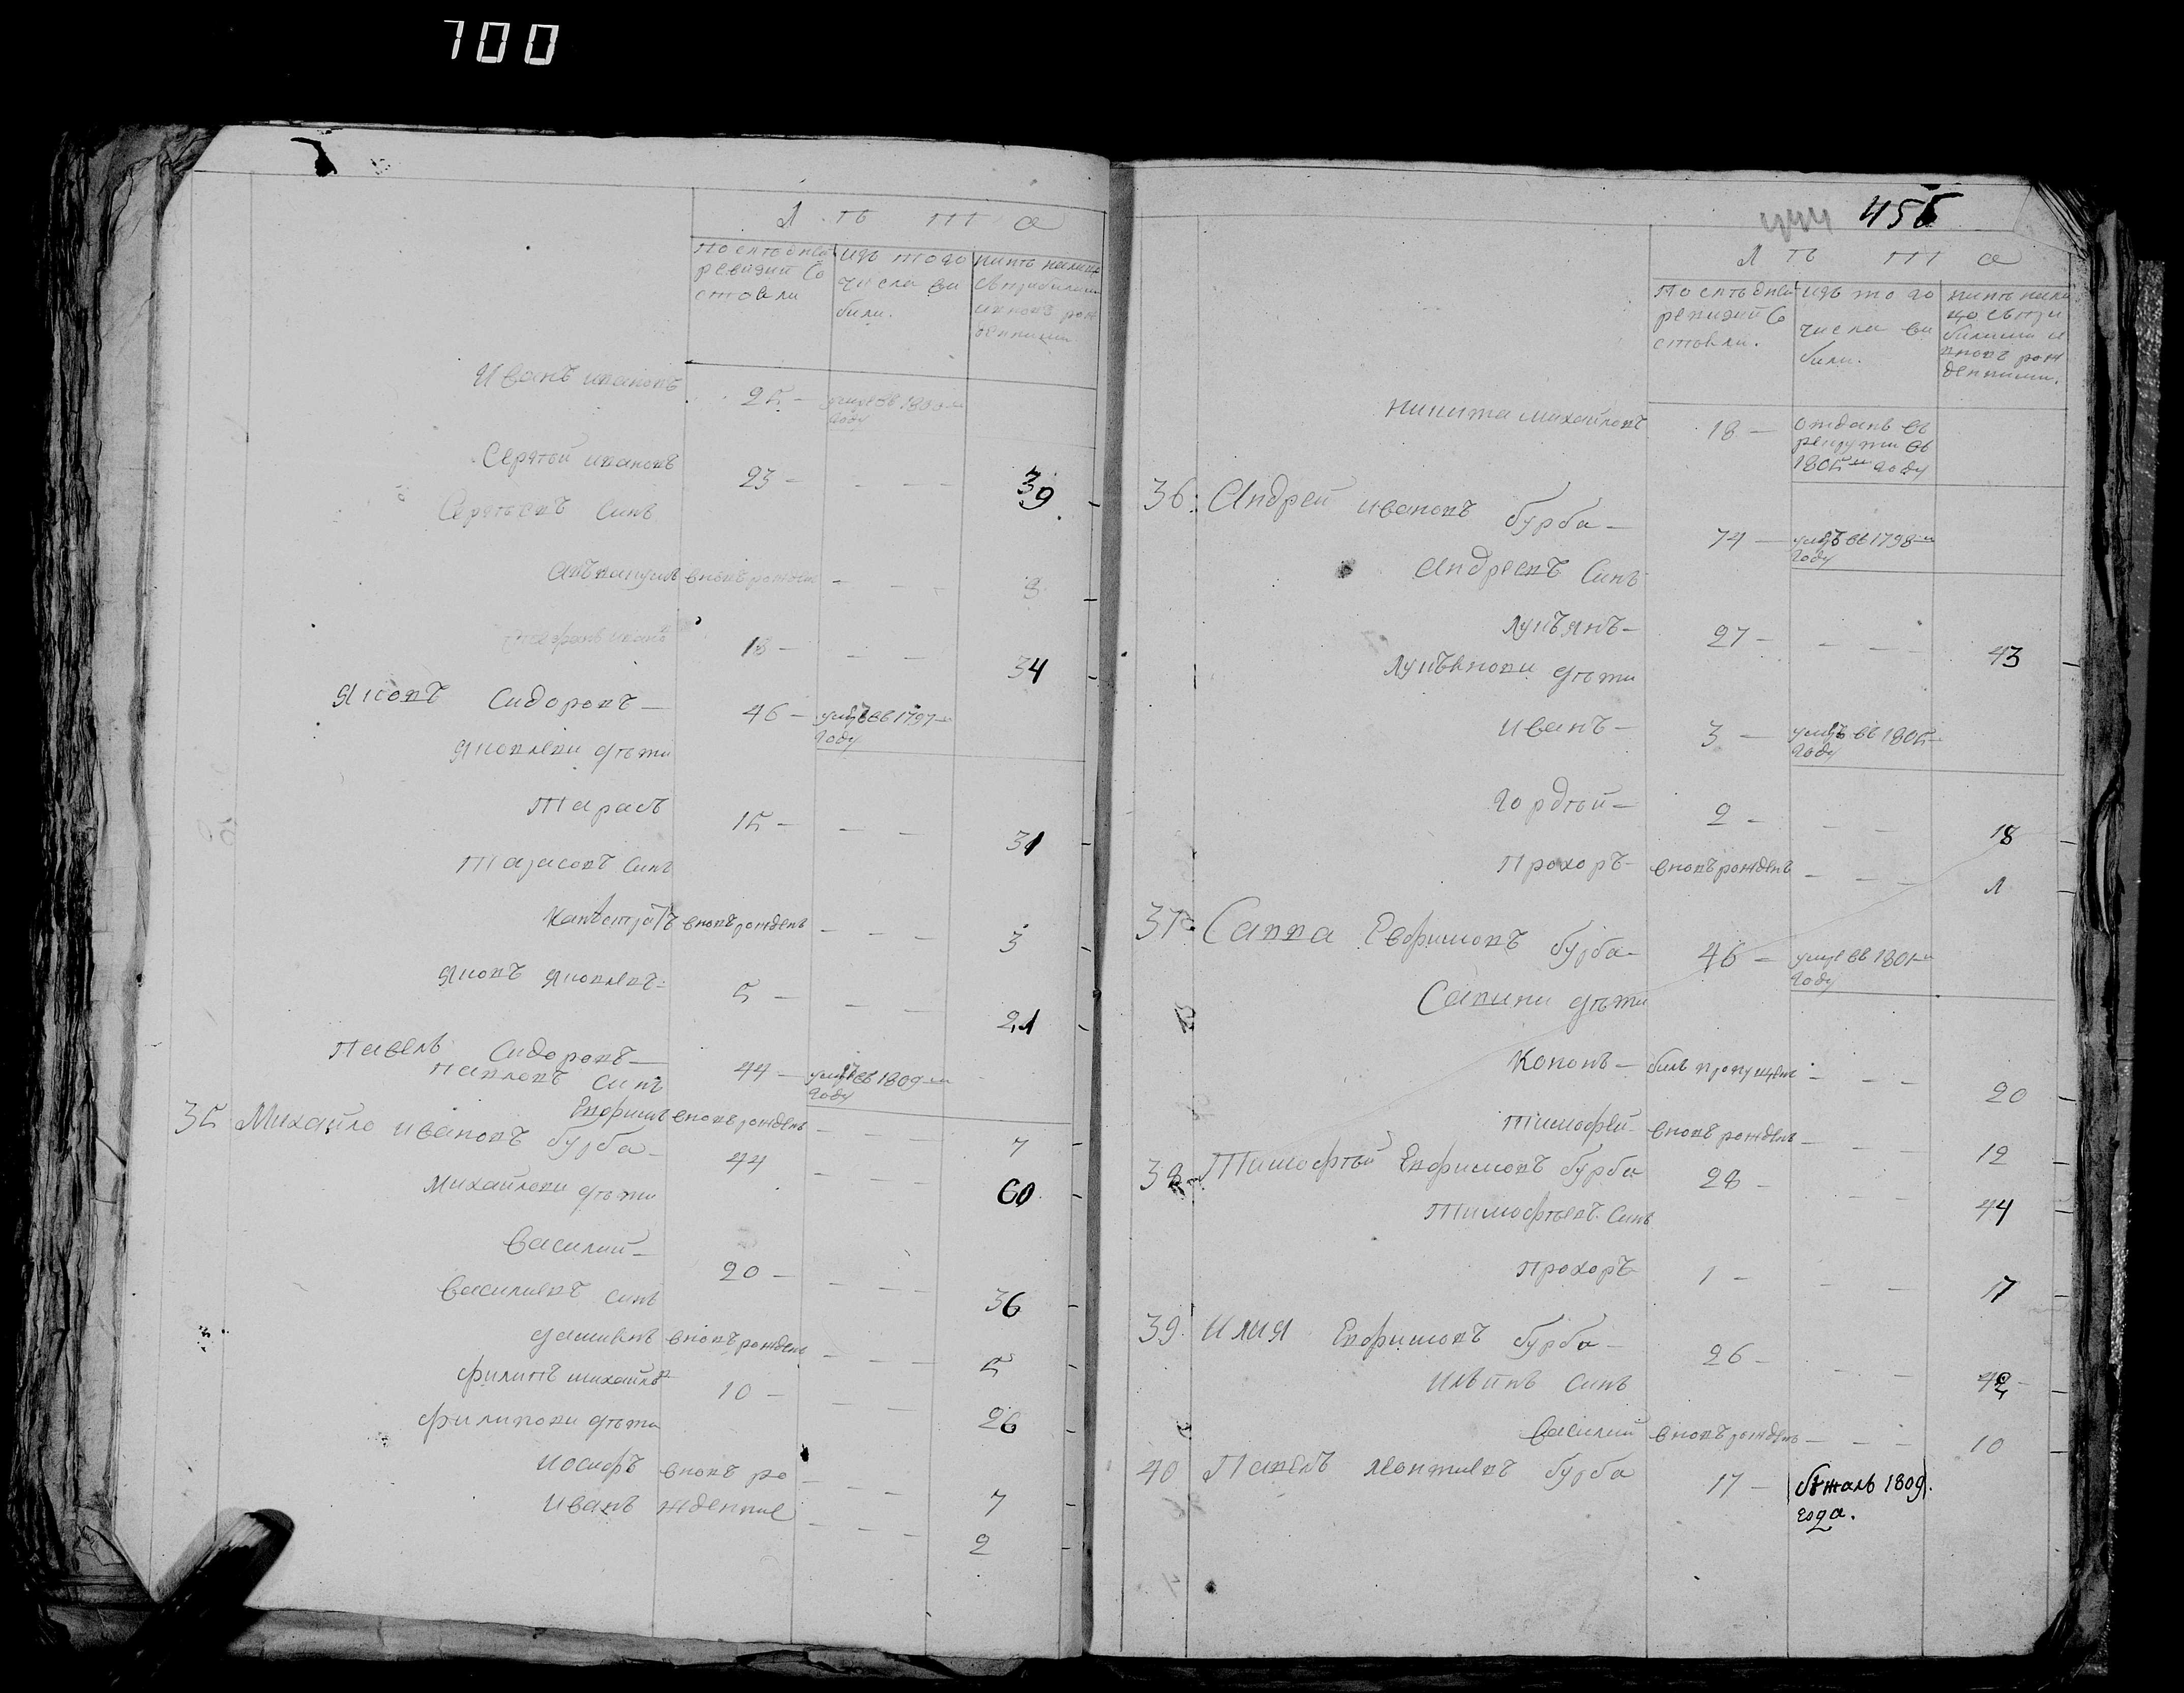 700
Лѣта
По слѣдней ревизии состояли
изъ того числа выбили.
Иванъ ивановъ 25 — умре въ 1800м году
Сергѣй ивановъ 23 — 39
Сергѣевъ Синъ
вновъ рожденъ — 3
18 — 34
Яковъ Сидоровъ — 46 — умръ въ 1797м году
Яковлеви дѣти
Тарасъ 15 — 31
Тарасовъ Синъ
Калѣстратъ вновъ рожденъ — 3
Яковъ Яковлевъ 5 — 21
Павелъ Сидоровъ — 44 — умръ въ 1809м году
Павловъ Синъ
Евфимъ вновъ рожденъ — 7
35 Михайло ивановъ бурба — 44 — 60
Михайлови дѣти
Василий — 20 — 36
Василиевъ Синъ
дамиянъ вновъ рожденъ — 5
филипъ михайловъ 10 — 26
филипови дѣти
иосифъ вновъ ро — 7
иванъ жденние — 2
455
Лѣта
По слѣдней ревизий состояли.
изъ того числа выбили.
никита михайловъ 18 — отданъ въ рекрути въ 1805м году
36. Андрей ивановъ бурба — 74 — умръ въ 1798м году
Андреевъ Синъ
лукъянъ — 27 — 43
лукъянови дѣти
иванъ — 3 — умръ въ 1805м году
гордѣй — 2 — 18
Прохоръ — вновъ рожденъ — 1
37. Савва Евфимовъ бурба — 46 — умре въ 1801м году
Савини дѣти
Кононъ — билъ пропущенъ — 20
тимофей вновъ рожденъ — 12
38. Тимофѣй Евфимовъ бурба 28 — 44
Тимофѣевъ Синъ
прохоръ 1 — 17
39. илия Евфимовъ бурба — 26 — 42
илѣинъ Синъ
василий вновъ рожденъ — 10
40 Павелъ леонтиевъ бурба 17 — бѣжалъ 1809. года.